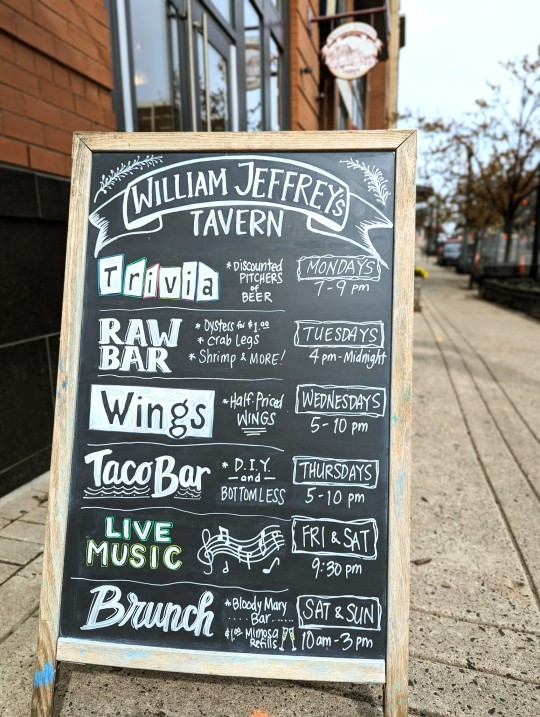 WILLIAM JEFFREYS
TAVERN
Trivia
*Discounted
PITCHERS
of
BEER
MONDAYS
7-9 pm
RAW
BAR
* Oysters for $1.00
* Crab Legs
* Shrimp & MORE!
TUESDAYS
4 pm-Midnight
Wings
*Half-Priced
WINGS
WEDNESDAYS
5-10 pm
Taco Bar
* D.I.Y.
-and-
BOTTOMLESS
THURSDAYS
5-10 pm
LIVE
MUSIC
FRI & SAT
9:30 pm
Brunch
*Bloody Mary
Bar
$1.00 Mimosa
Refills
SAT & SUN
10am-3pm